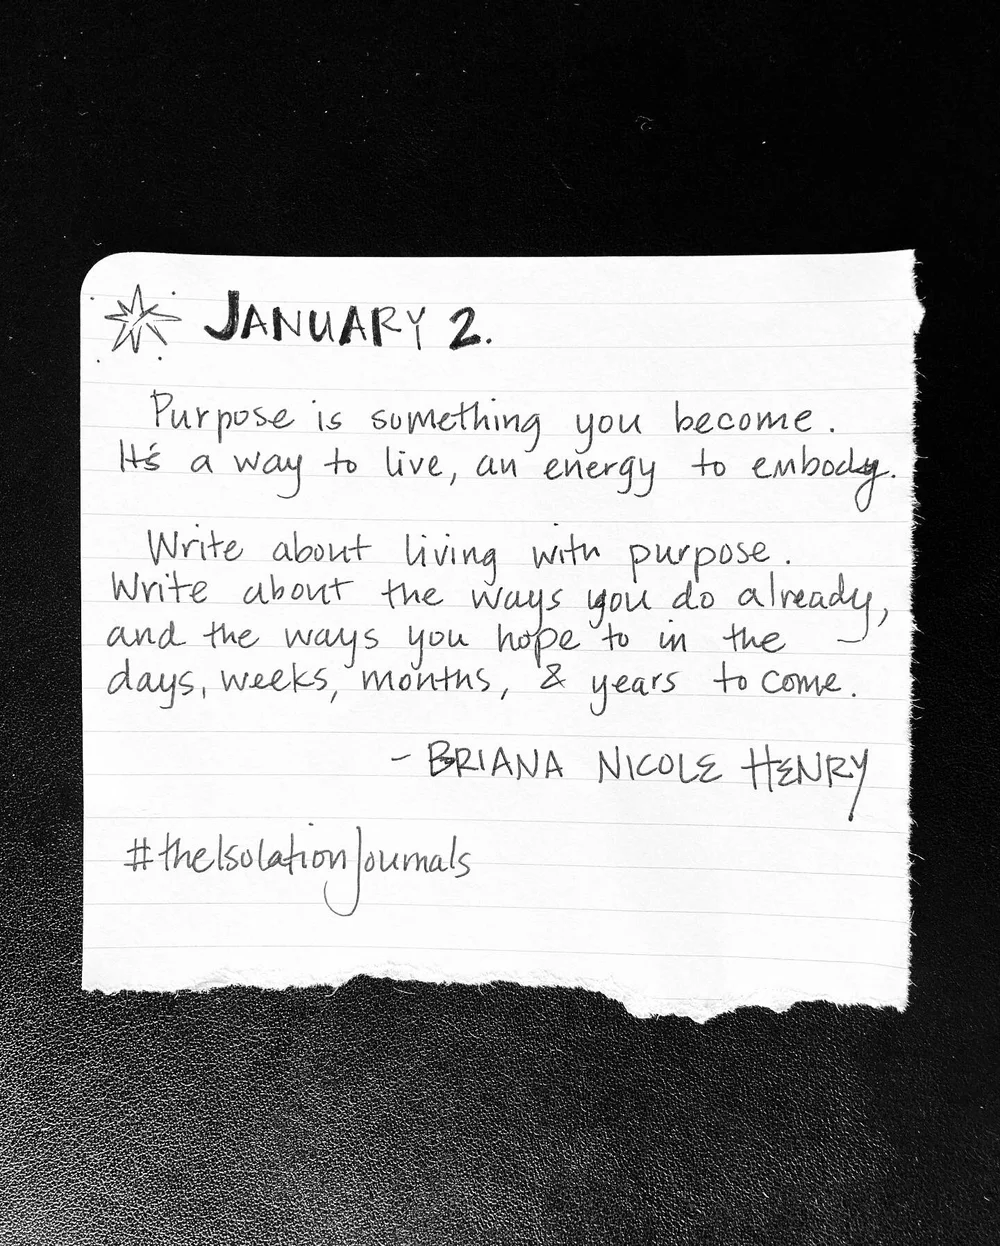 JANUARY 2.
Purpose is something you become.
It's a way to live, an energy to embody.
Write about living with purpose.
Write about the ways you do already,
and the ways you hope to in the
days, weeks, months, & years to come.
- BRIANA NICOLE HENRY
#theIsolationJournals